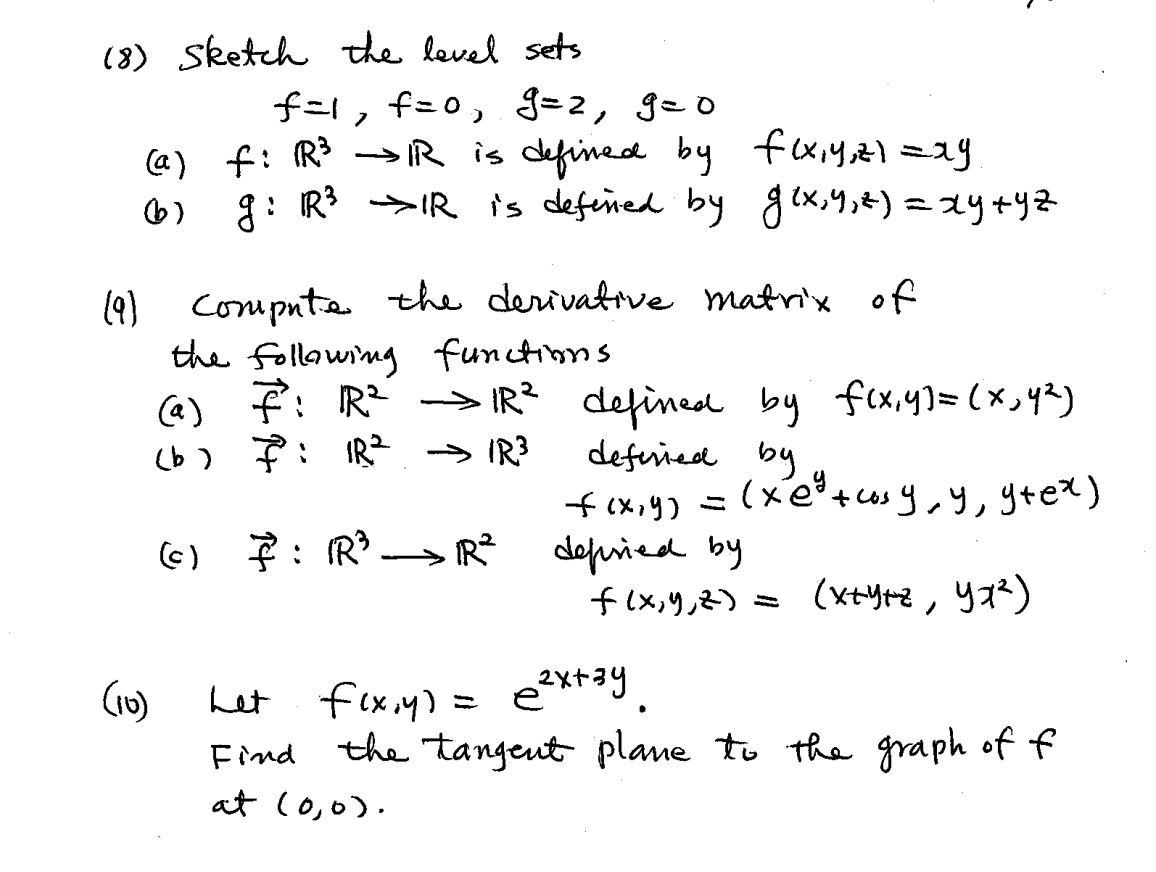 (8) Sketch the level sets
f=1, f=0, g=2, g=0
(a) f: ℝ³ → ℝ is defined by f(x,y,z) = xy
(b) g: ℝ³ → ℝ is defined by g(x,y,z) = xy+yz
(9) Compute the derivative matrix of
the following functions
(a) f⃗: ℝ² → ℝ² defined by f(x,y) = (x, y²)
(b) f⃗: ℝ² → ℝ³ defined by
f(x,y) = (xe^y + cos y, y, y+e^x)
(c) f⃗: ℝ³ → ℝ² defined by
f(x,y,z) = (x+y+z, yx²)
(10) Let f(x,y) = e^{2x+3y}.
Find the tangent plane to the graph of f
at (0,0).